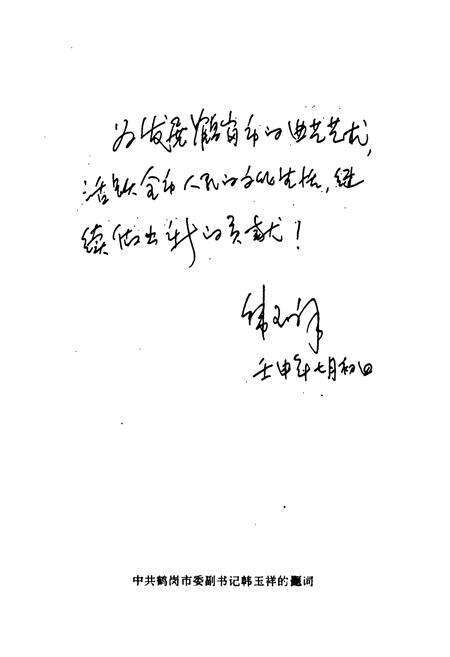 为发展鹤岗市的曲艺艺术，
活跃全市人民的文化生活，继
续做出新的贡献！
韩玉祥
壬申年七月初四
中共鹤岗市委副书记韩玉祥的题词